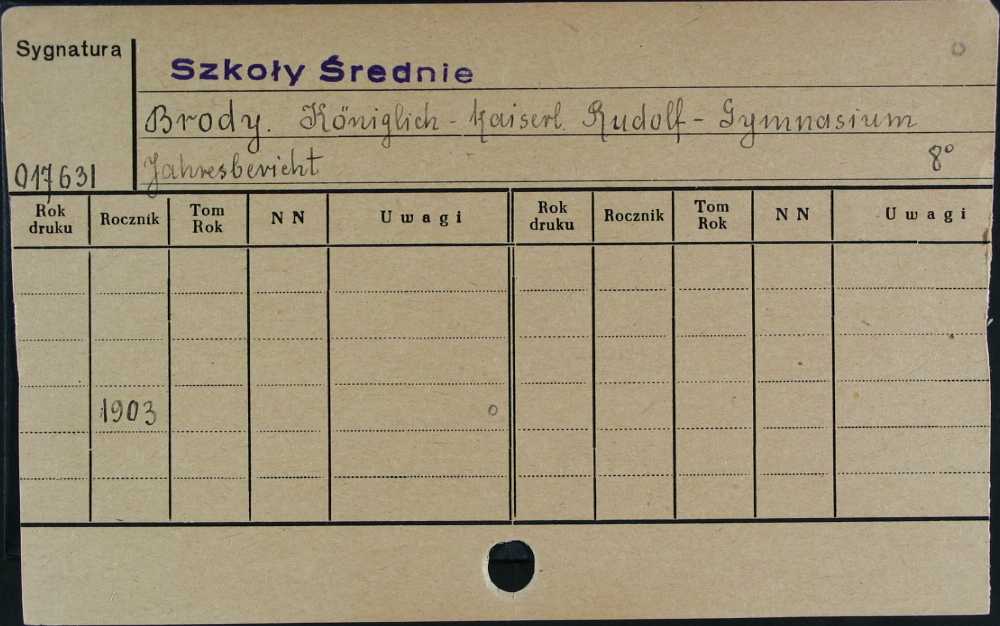 Sygnatura
Szkoły Średnie
Brody. Königlich-kaiserl. Rudolf-Gymnasium
Jahresbericht 8°
017631
Rok druku Rocznik Tom Rok N N Uwagi Rok druku Rocznik Tom Rok N N Uwagi
1903